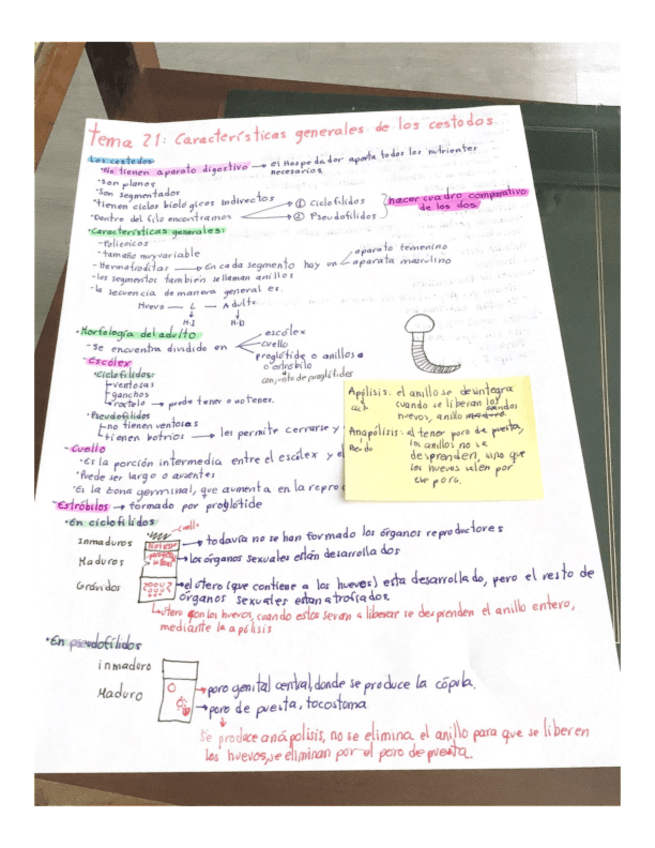 Tema 21: Características generales de los cestodos.
Los cestodos
•No tienen aparato digestivo → el Hospedador aporta todos los nutrientes
necesarios.
•Son planos
•Son segmentados
•tienen ciclos biológicos indirectos
•Dentro del filo encontramos
① Ciclofilidos
② Pseudofilidos
hacer cuadro comparativo
de los dos.
•Características generales:
-tamaño muy variable
-Hermafroditas → en cada segmento hay un
aparato femenino
aparato masculino
-los segmentos también se llaman anillos
-la secuencia de manera general es:
Huevo — L — Adulto
H-I
H-D
•Morfología del adulto
-Se encuentra dividido en
escólex
cuello
proglótide o anillos
o estróbilo
conjunto de proglótides
-Escólex
•Ciclofilidos:
ventosas
ganchos
→ puede tener o no tener.
•Pseudofilidos
no tienen ventosas
tienen botrios → les permite cerrarse y
-Cuello
•Es la porción intermedia entre el escólex y el
•Puede ser largo o ausentes
•Es la zona germinal, que aumenta en la repro
-Estróbilos → formado por proglótide
Apólisis: el anillo se desintegra
cuando se liberan los
huevos, anillo
Anapólisis: al tener poro de puesta,
los anillos no se
desprenden, sino que
los huevos salen por
ese poro.
•En ciclofilidos
cuello
Inmaduros → todavía no se han formado los órganos reproductores
Maduros → los órganos sexuales están desarrollados
Grávidos → el útero (que contiene a los huevos) esta desarrollado, pero el resto de
órganos sexuales estan atrofiados.
útero con los huevos, cuando estos seran a liberar se desprenden el anillo entero,
mediante la apólisis
•En pseudofilidos
inmaduro
Maduro
→ poro genital central, donde se produce la cópula.
→ poro de puesta, tocostoma
Se produce anápolisis, no se elimina el anillo para que se liberen
los huevos, se eliminan por el poro de puesta.